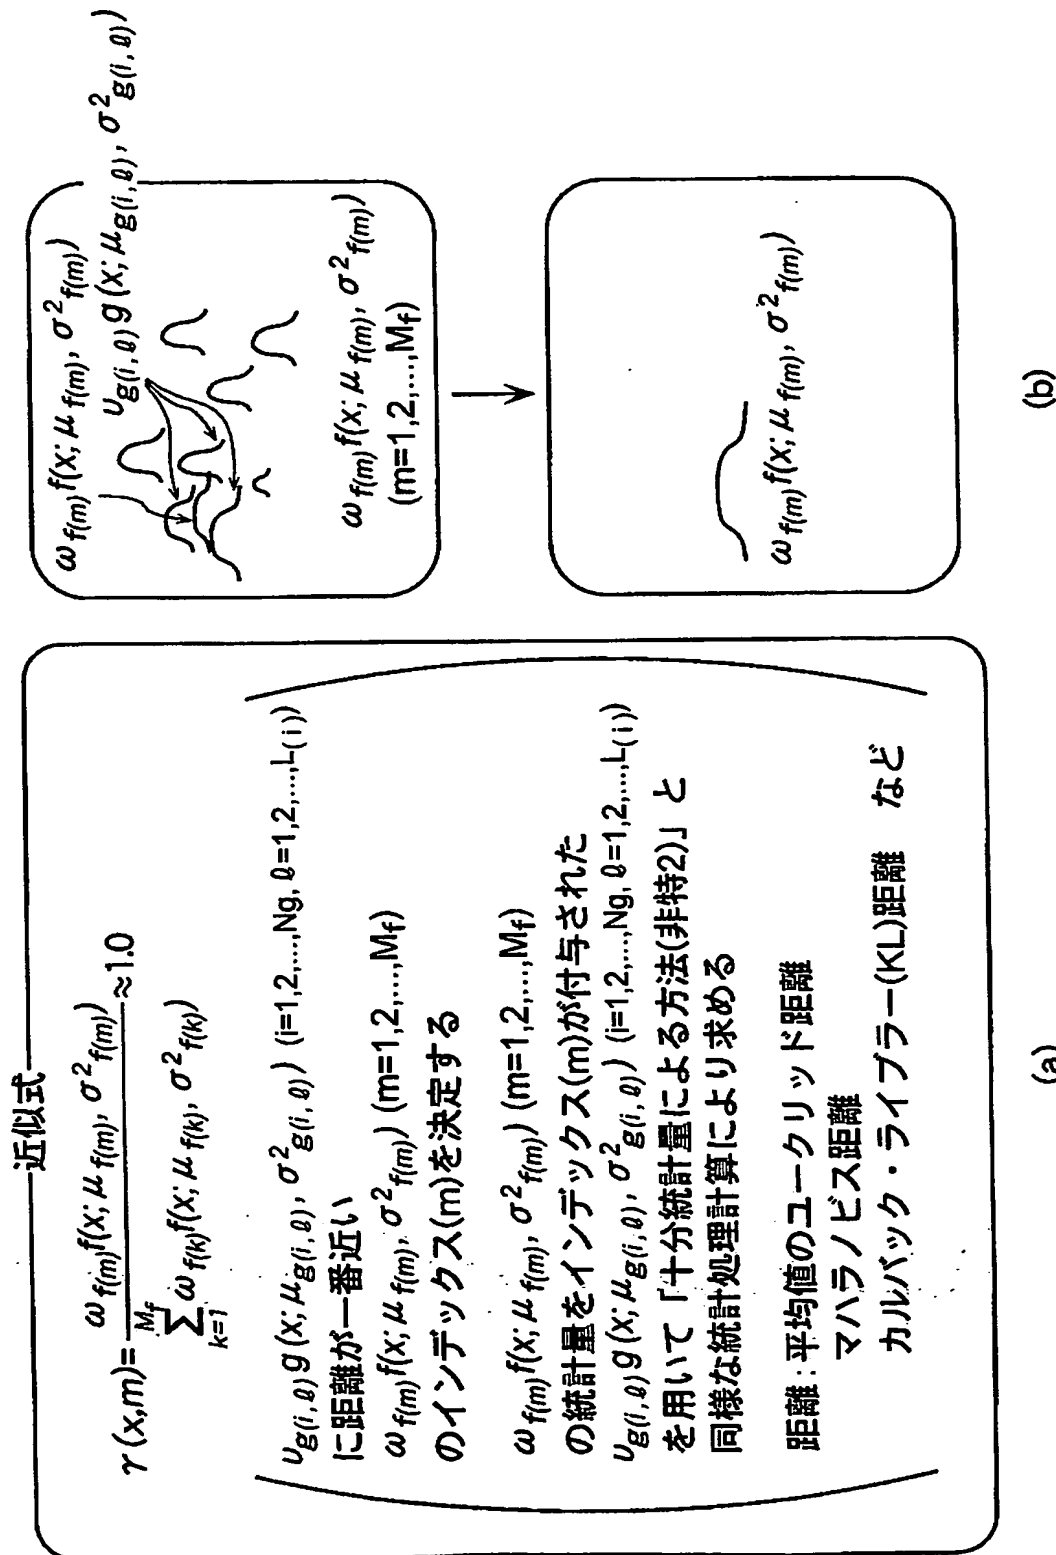 近似式
γ(x,m)= ω_{f(m)}f(x;μ_{f(m)}, σ²_{f(m)}) / Σ_{k=1}^{M_f} ω_{f(k)}f(x;μ_{f(k)}, σ²_{f(k)}) ≈1.0
υ_{g(i,ℓ)}g(x;μ_{g(i,ℓ)}, σ²_{g(i,ℓ)}) (i=1,2,...,Ng, ℓ=1,2,...,L_{(i)})
に距離が一番近い
ω_{f(m)}f(x;μ_{f(m)}, σ²_{f(m)}) (m=1,2,...,M_f)
のインデックス(m)を決定する
ω_{f(m)}f(x;μ_{f(m)}, σ²_{f(m)}) (m=1,2,...,M_f)
の統計量をインデックス(m)が付与された
υ_{g(i,ℓ)}g(x;μ_{g(i,ℓ)}, σ²_{g(i,ℓ)}) (i=1,2,...,Ng, ℓ=1,2,...,L_{(i)})
を用いて「十分統計量による方法(非特2)」と
同様な統計処理計算により求める
距離：平均値のユークリッド距離
マハラノビス距離
カルバック・ライブラー(KL)距離　など
(a)
ω_{f(m)}f(x;μ_{f(m)}, σ²_{f(m)})
υ_{g(i,ℓ)}g(x;μ_{g(i,ℓ)}, σ²_{g(i,ℓ)})
ω_{f(m)}f(x;μ_{f(m)}, σ²_{f(m)})
(m=1,2,...,M_f)
ω_{f(m)}f(x;μ_{f(m)}, σ²_{f(m)})
(b)